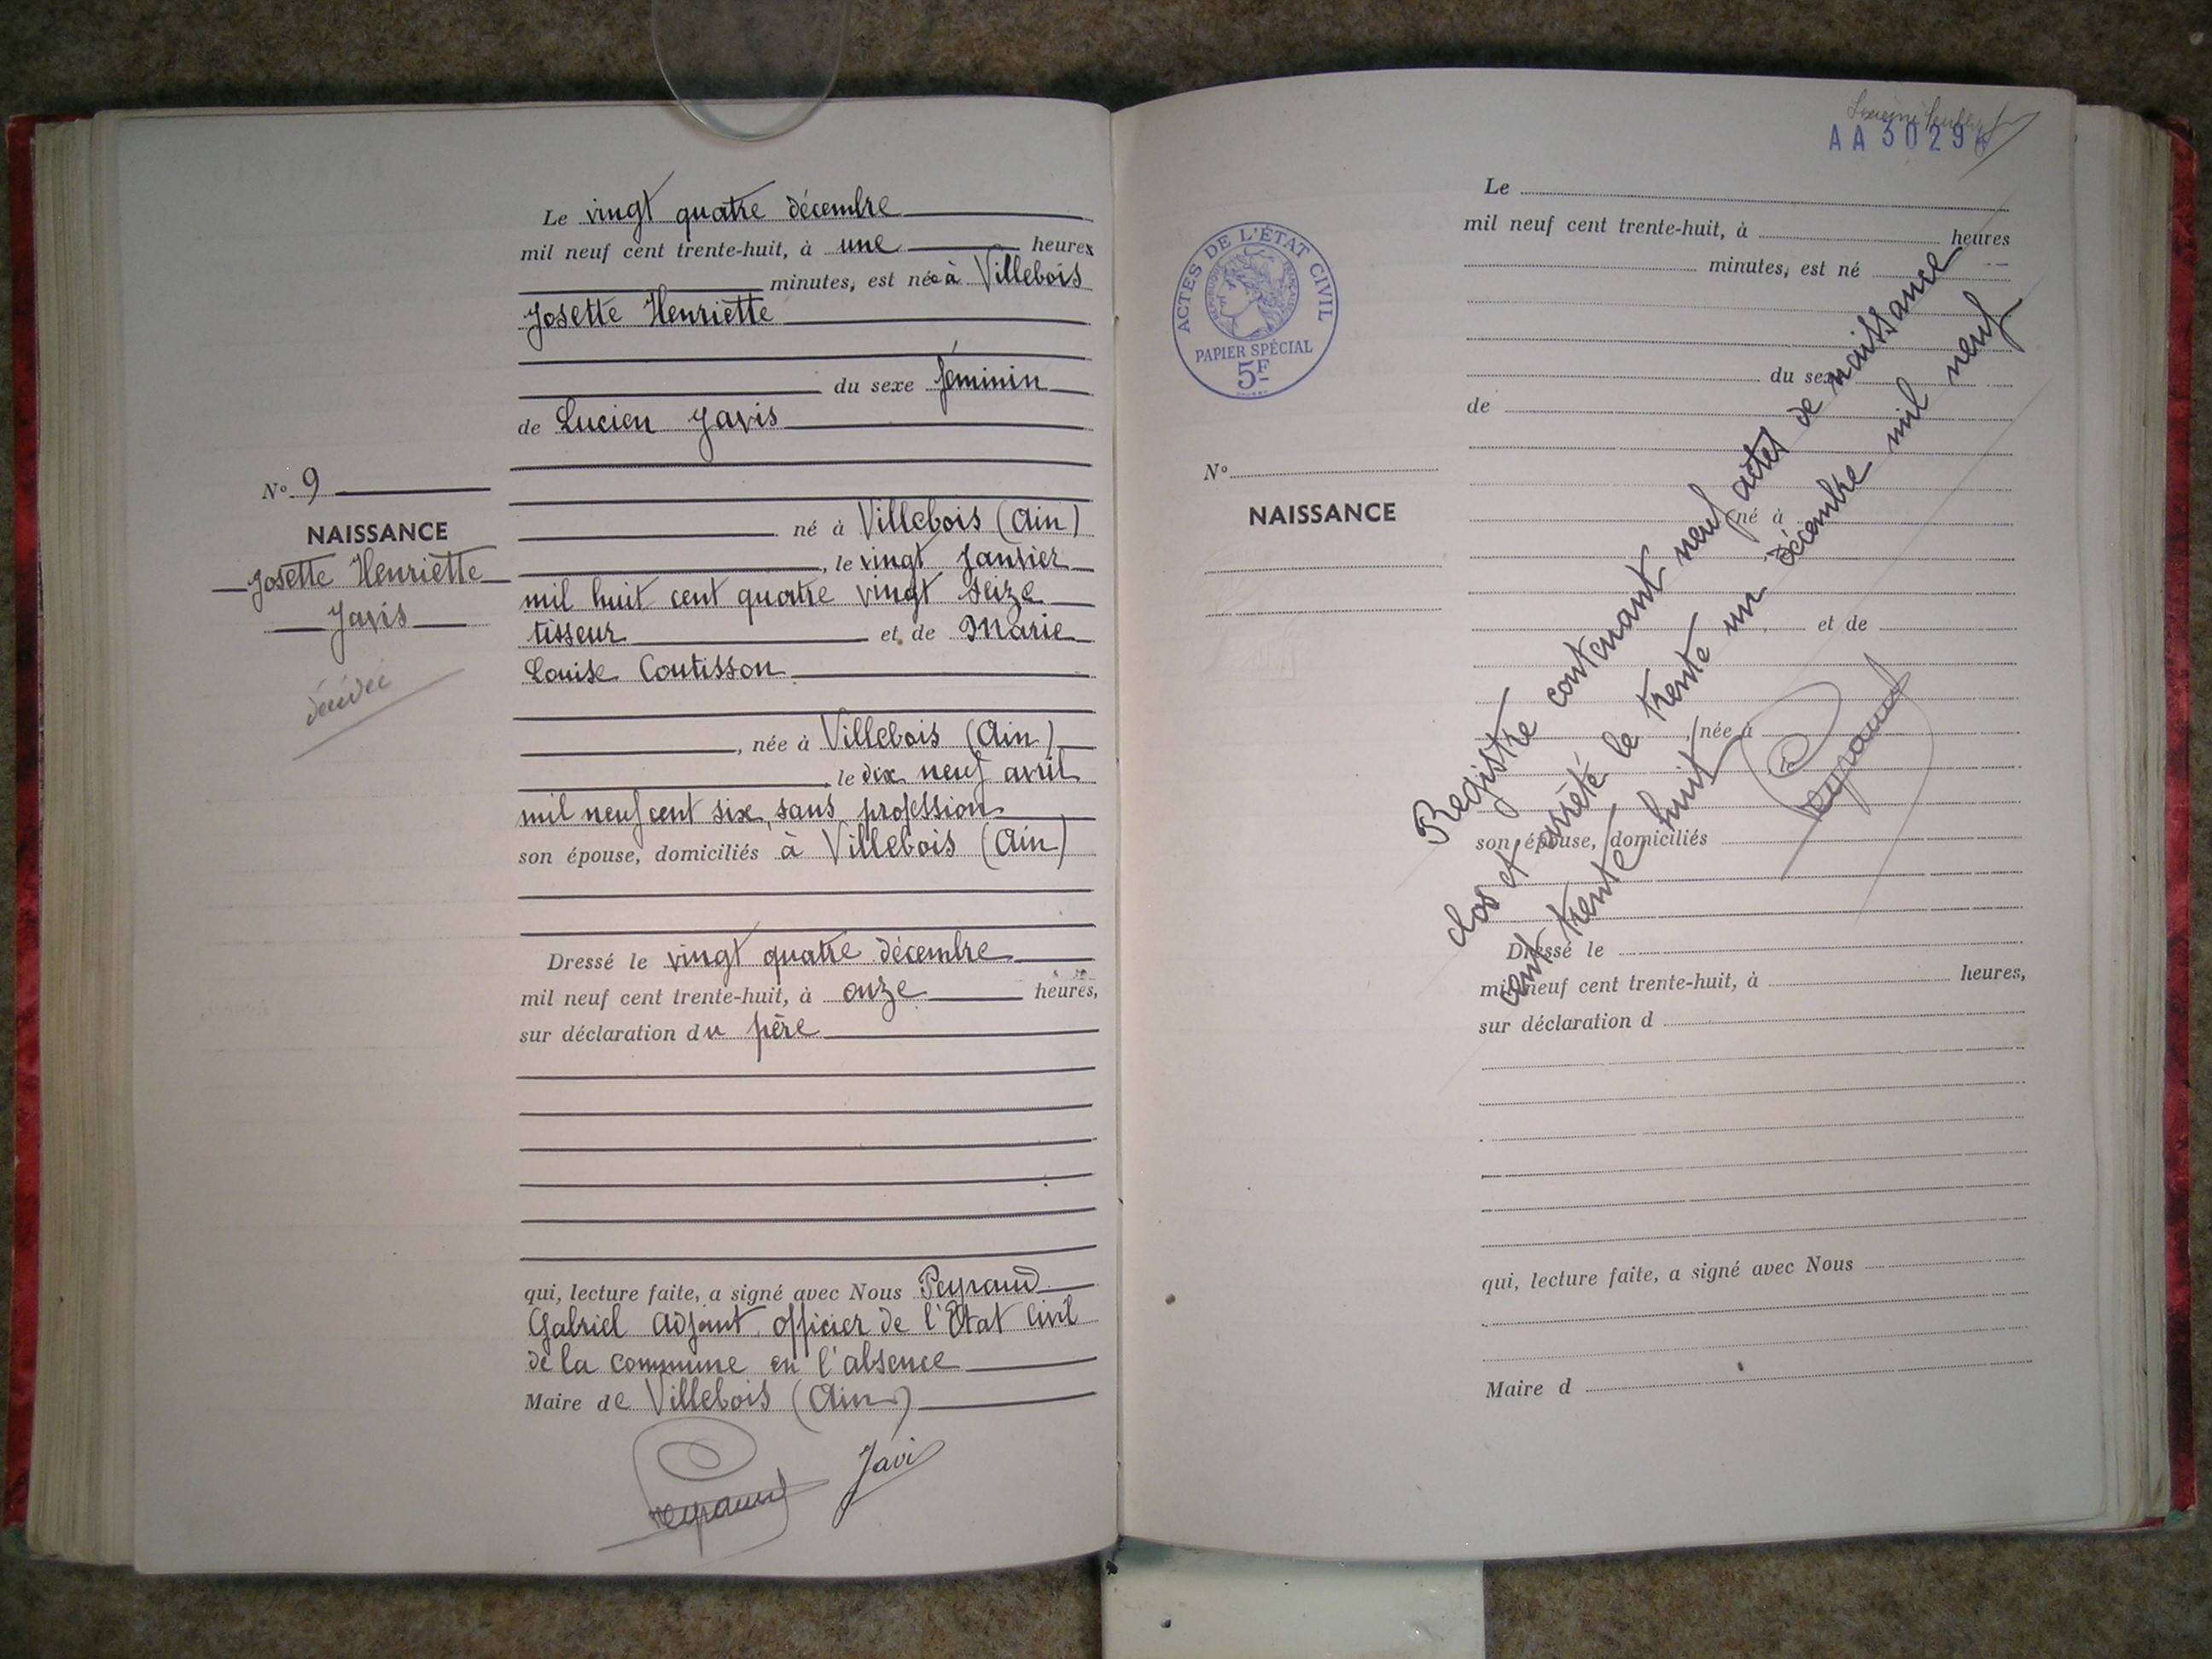 Le vingt quatre décembre
mil neuf cent trente-huit, à une heures
minutes, est née à Villebois
Josette Henriette
du sexe féminin
de Lucien Javis
N° 9
NAISSANCE
Josette Henriette
Javis
décédée
né à Villebois (Ain)
, le vingt Janvier
mil huit cent quatre vingt seize
tisseur et de Marie
Louise Coutisson
, née à Villebois (Ain)
, le dix neuf avril
mil neuf cent six, sans profession
son épouse, domiciliés à Villebois (Ain)
Dressé le vingt quatre décembre
mil neuf cent trente-huit, à onze heures,
sur déclaration du père
qui, lecture faite, a signé avec Nous Peyraud
Gabriel adjoint, officier de l'Etat Civil
de la commune en l'absence
Maire de Villebois (Ain)
Peyraud Javi
AA 3029
ACTES DE L'ÉTAT CIVIL
RÉPUBLIQUE FRANÇAISE
PAPIER SPÉCIAL
5F
Le
mil neuf cent trente-huit, à heures
minutes, est né
du sexe
de
N°
NAISSANCE
né à
et de
, née à
son épouse, domiciliés
Dressé le
mil neuf cent trente-huit, à heures,
sur déclaration d
qui, lecture faite, a signé avec Nous
Maire d
Registre contenant neuf actes de naissance
clos et arrêté le trente un décembre mil neuf
cent trente huit
Peyraud